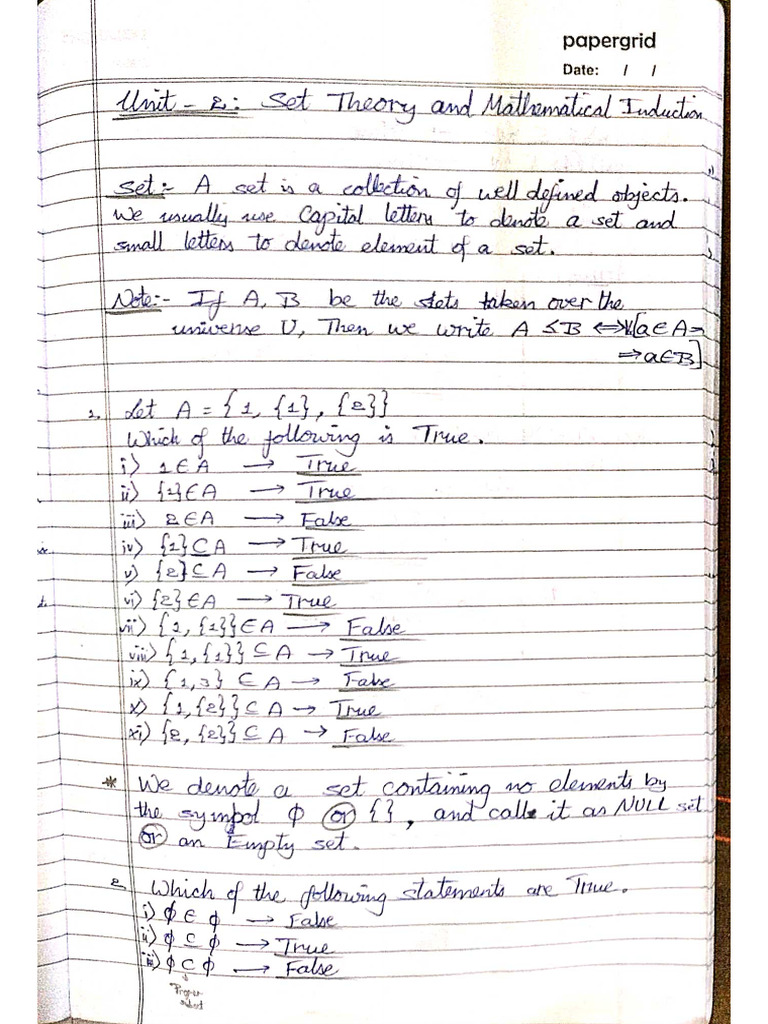 papergrid
Date: / /
Unit - 2: Set Theory and Mathematical Induction
Set:- A set is a collection of well defined objects.
We usually use Capital letters to denote a set and
small letters to denote element of a set.
Note:- If A, B be the sets taken over the
universe U, Then we write A ⊆ B ⟺ ∀[a∈A=
⇒a∈B]
1. Let A = {1, {1}, {2}}
Which of the following is True.
i) 1 ∈ A → True
ii) {1} ∈ A → True
iii) 2 ∈ A → False
iv) {1} ⊆ A → True
v) {2} ⊆ A → False
vi) {2} ∈ A → True
vii) {1, {1}} ∈ A → False
viii) {1, {1}} ⊆ A → True
ix) {1,3} ∈ A → False
x) {1,{2}} ⊆ A → True
xi) {2, {2}} ⊆ A → False
* We denote a set containing no elements by
the symbol ϕ or {}, and call it as NULL set
or an Empty set.
2 Which of the following statements are True.
i) ϕ ∈ ϕ → False
ii) ϕ ⊆ ϕ → True
iii) ϕ ⊂ ϕ → False
Proper
subset